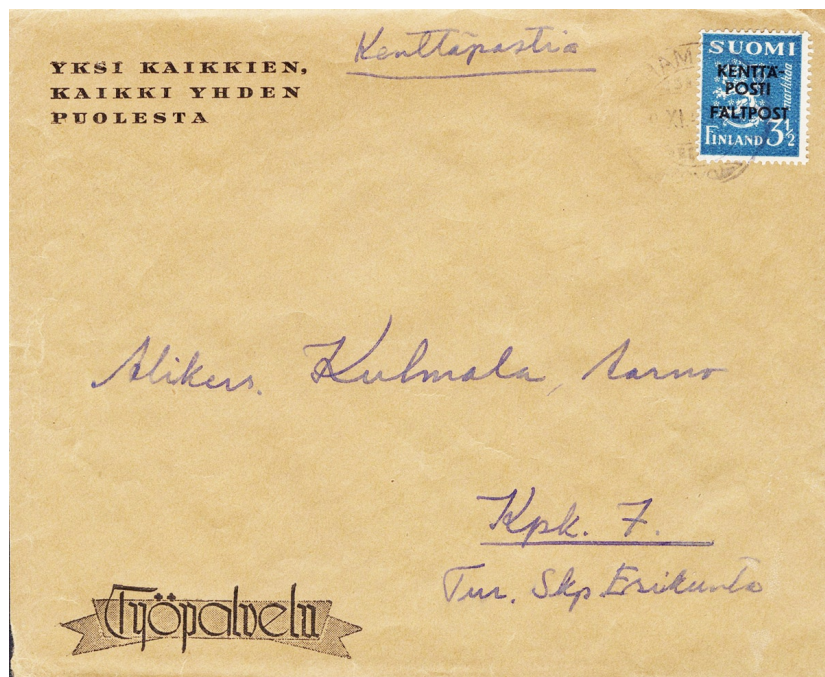 YKSI KAIKKIEN,
KAIKKI YHDEN
PUOLESTA
Kenttäpostia
SUOMI
KENTTÄ-
POSTI
markkaa
FÄLTPOST
FINLAND 3½
Alikers. Kulmala, Aarno
Kpk. 7.
Tur. Skp. Esikunta
Työpalvelu